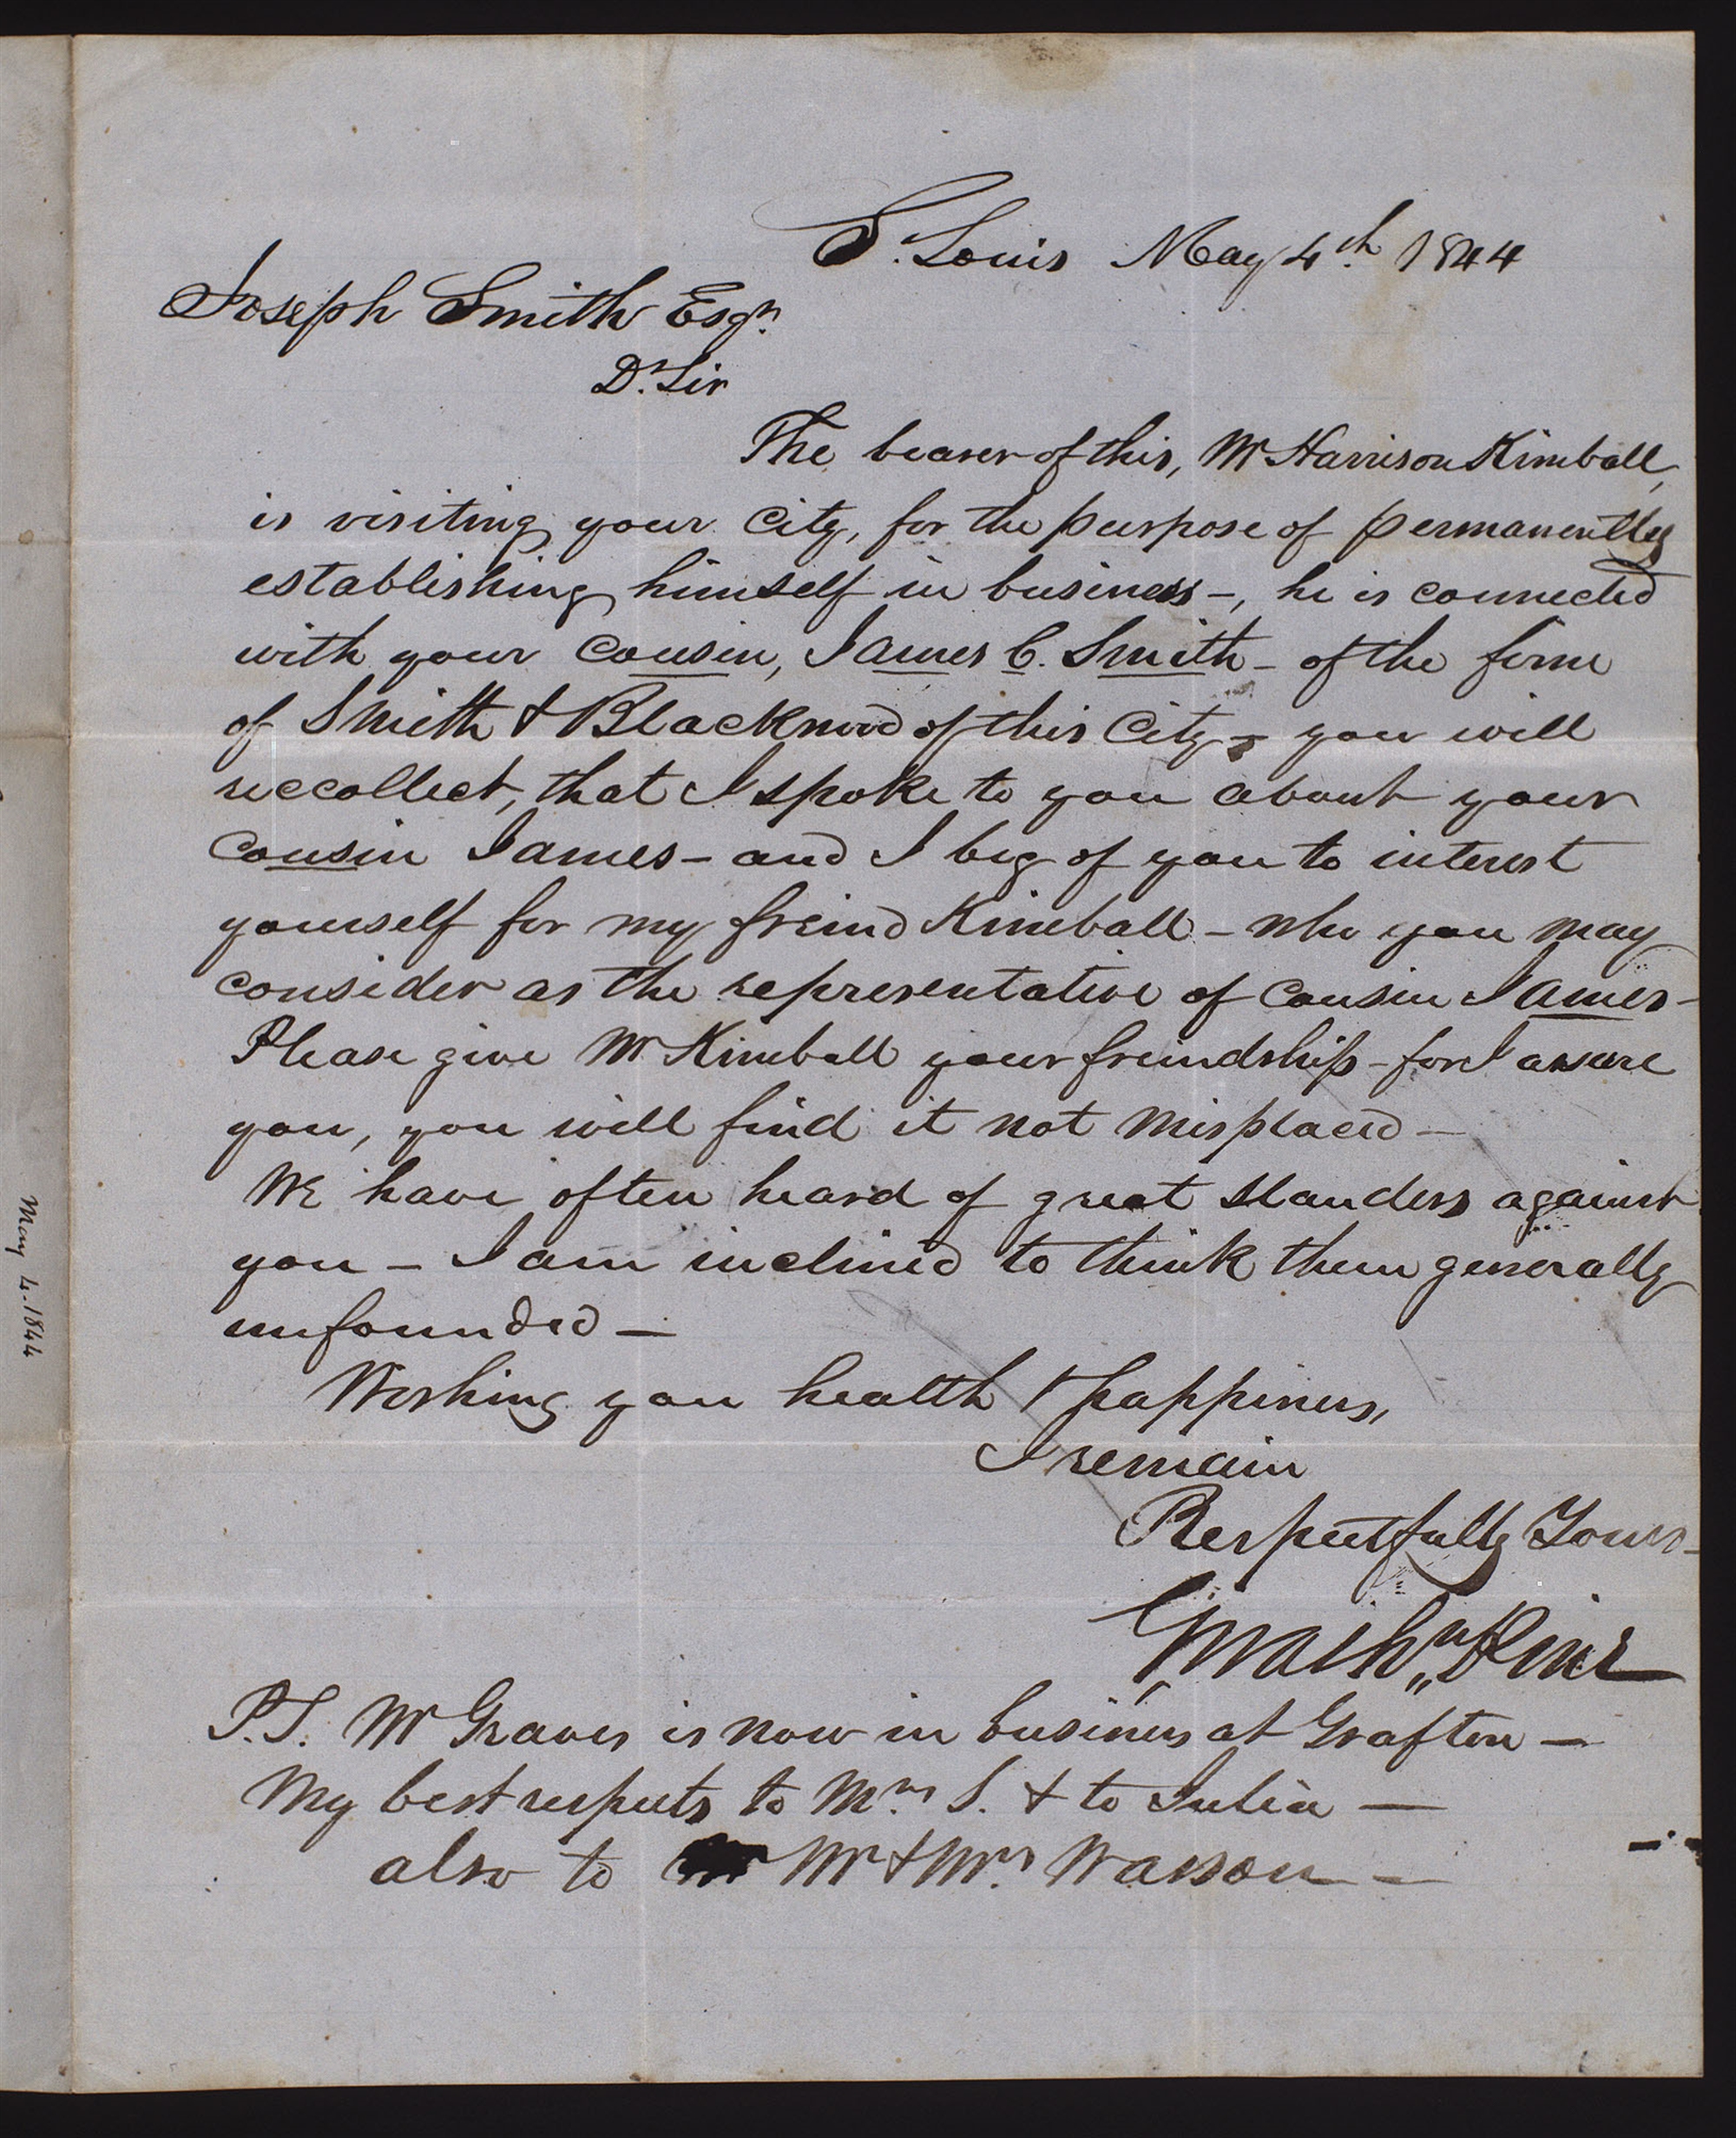 St. Louis May 4th 1844
Joseph Smith Esqr.
Dr. Sir
The bearer of this, Mr Harrison Kimball,
is visiting your City, for the purpose of permanently
establishing himself in business -, he is connected
with your cousin, James C. Smith - of the firm
of Smith & Blackwood of this City - you will
reccollect, that I spoke to you about your
cousin James - and I beg of you to interest
yourself for my freind Kimball - who you may
consider as the representative of cousin James -
Please give Mr Kimball your freindship - for I assure
you, you will find it not misplaced -
We have often heard of great slanders against
you - I am inclined to think them generally
unfounded -
Wishing you health & happiness,
I remain
Respectfully Yours -
P.S. Mr Graves is now in business at Grafton -
My best respects to Mrs S. & to Julia -
also to Mr & Mrs. Wasson -
May 4. 1844